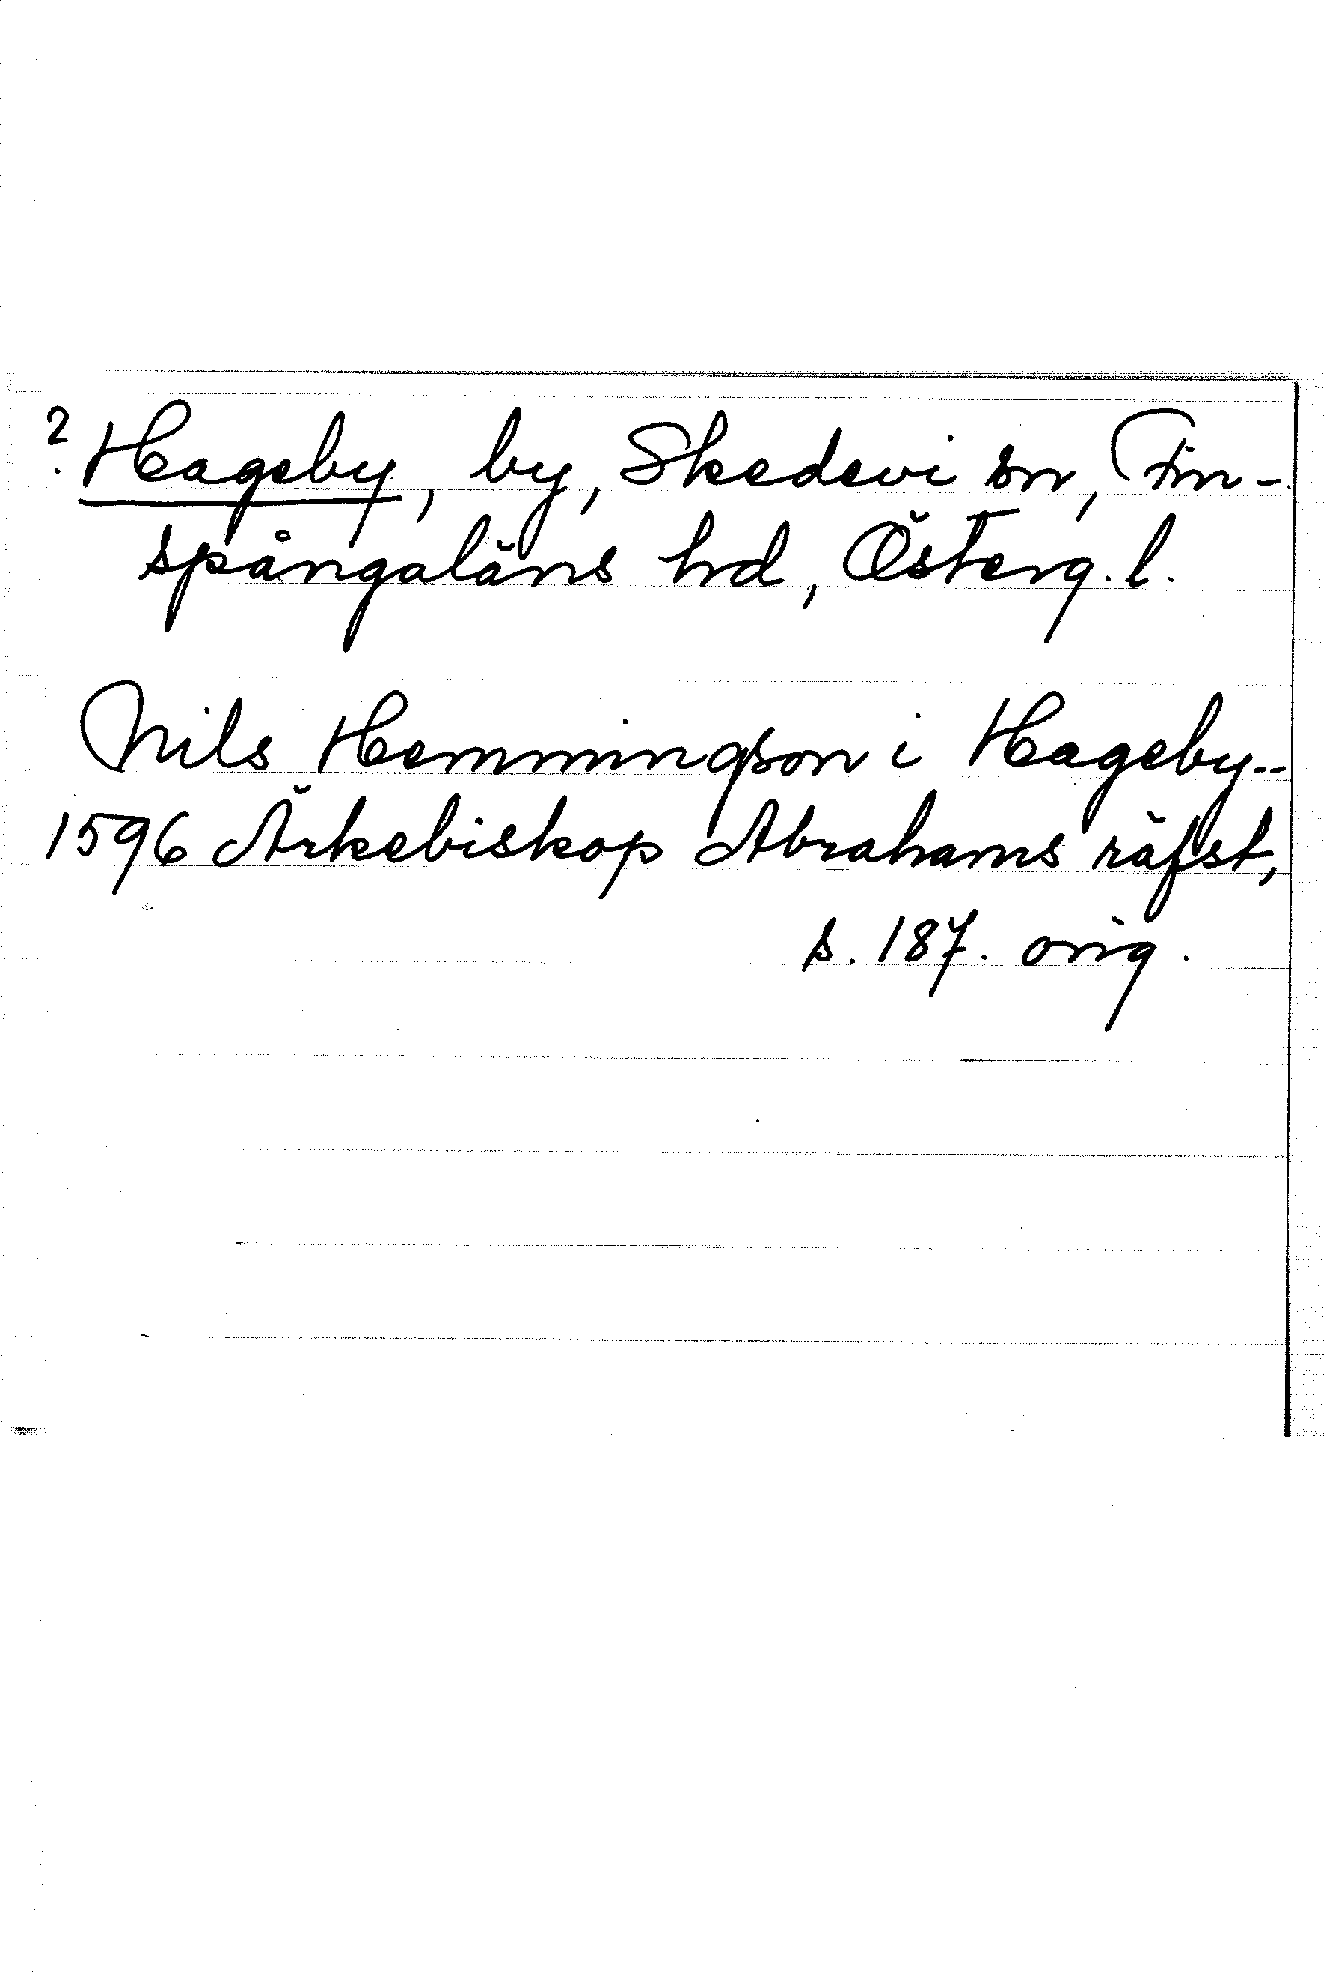 ? Hageby, by, Skedevi sn, Fin-
spångaläns hd, Österg. l.
Nils Hemmingson i Hageby..
1596 Ärkebiskop Abrahams räfst,
s. 187. orig.